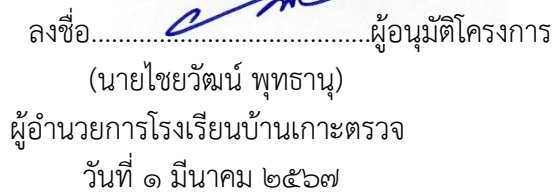 ลงชื่อ.......................................ผู้อนุมัติโครงการ
(นายไชยวัฒน์ พุทธานุ)
ผู้อำนวยการโรงเรียนบ้านเกาะตรวจ
วันที่ ๑ มีนาคม ๒๕๖๗